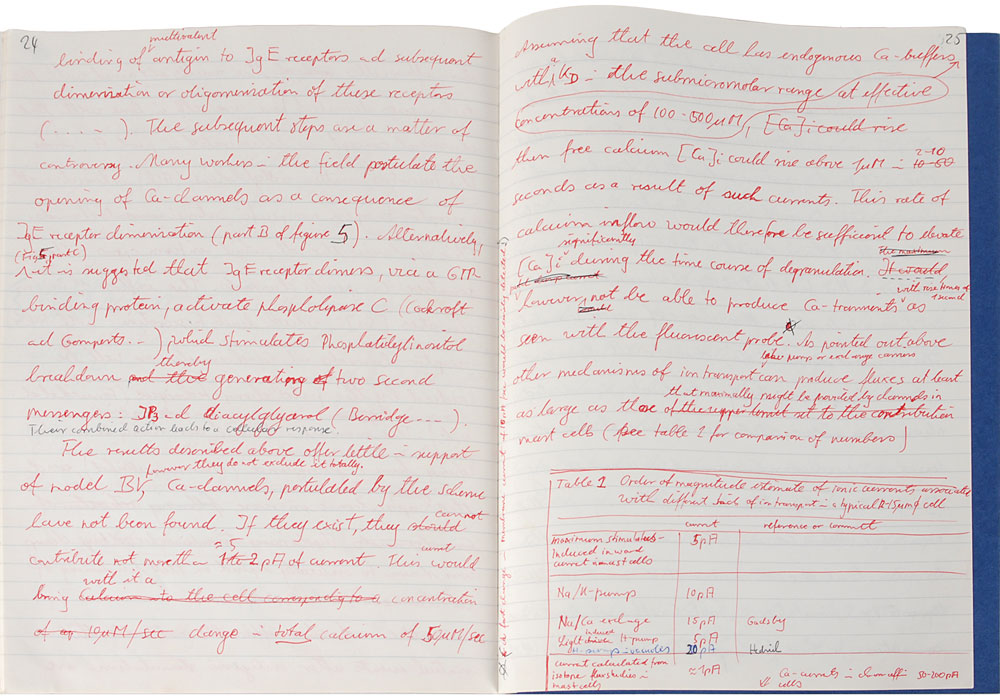 24
multivalent
binding of antigen to IgE receptors and subsequent
dimerization or oligomerization of these receptors
(. . . . ). The subsequent steps are a matter of
controversy. Many workers in the field postulate the
opening of Ca-channels as a consequence of
IgE receptor dimerization (part B of figure 5). Alternatively,
(Fig 5, part C)
it is suggested that IgE receptor dimers, via a GTP
binding protein, activate phospholipase C (Cockroft
and Gomperts. - ) which stimulates Phosphatidylinositol
thereby
breakdown and the generating of two second
messengers: IP3 and Diacylglycerol (Berridge ---).
Their combined action leads to a cellular response.
The results described above offer little in support
however they do not exclude it totally.
of model B, Ca-channels, postulated by the scheme
have not been found. If they exist, they should
cannot
≈ 5
contribute not more than 1 to 2 pA of current. This would
current
with it a
bring calcium to the cell corresponding to a concentration
of 10µM/sec change in total calcium of 50µM/sec
25
Assuming that the cell has endogenous Ca-buffers
with a KD in the submicromolar range at effective
concentrations of 100-500µM, [Ca]i could rise
then free calcium [Ca]i could rise above 1µM in 10-60
2-10
seconds as a result of such currents. This rate of
calcium inflow would therefore be sufficient to elevate
significantly
the maximum
[Ca]i during the time course of degranulation. It would
with rise times of 1 second
however, not be able to produce Ca-transients as
seen with the fluorescent probe. As pointed out above
like pump or exchange carriers
other mechanisms of ion transport can produce fluxes at least
that maximally might be provided by channels in
as large as those of the upper limit set to the contribution
mast cells (see table 1 for comparison of numbers)
Table 1 Order of magnitude estimate of ionic currents, associated
with different kinds of ion transport in a typical 12-15µm ϕ cell
current reference or comment
maximum stimulus-
induced inward
current in mast cells 5pA
Na/K-pump 10pA
Na/Ca exchange 15pA Gadsby
Light induced H-pump 5pA
20pA Hedrich
current calculated from
isotope flux studies in
mast cells ≈1pA
Ca-currents in chromaffin cells 50-200pA